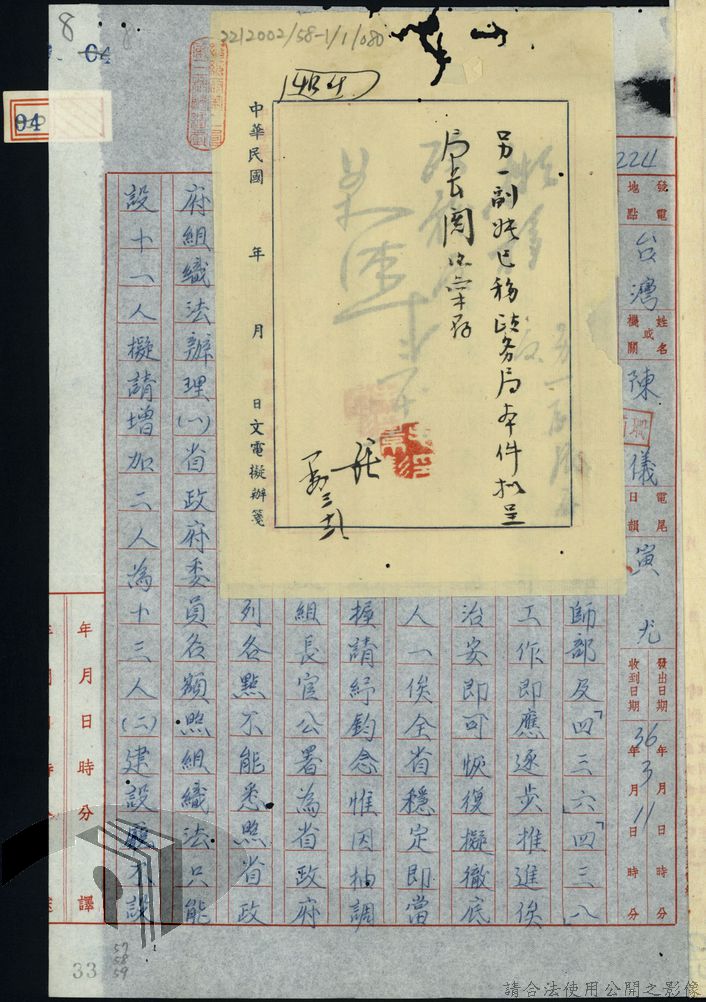 8
04
04
2212002/58-1/1/080
484
224
發電地點
台灣
姓名或機關
陳儀
電尾日韻
寅尤
發出日期 年 月 日 時 分
收到日期 年 月 日 時 分
36 3 11
另一副張已移政務局本件擬呈
局長閱後存
中華民國 年 月 日文電擬辦箋
師部及「四三六」「四三八」
工作即應逐步推進俟
治安即可恢復擬徹底
人一俟全省穩定即當
握請紓鈞念惟因抽調
組長官公署為省政府
列各點不能悉照省政
府組織法辦理(一)省政府委員名額照組織法只能
設十一人擬請增加二人為十三人(二)建設廳不設
年 月 日 時 分 譯
33
57
58
59
請合法使用公開之影像